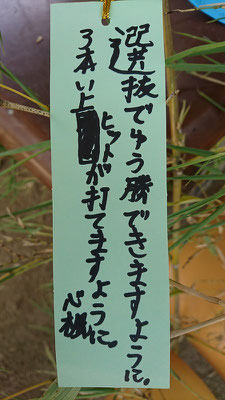 選抜でゆう勝できますように。
3本い上ヒットが打てますように。
心楓